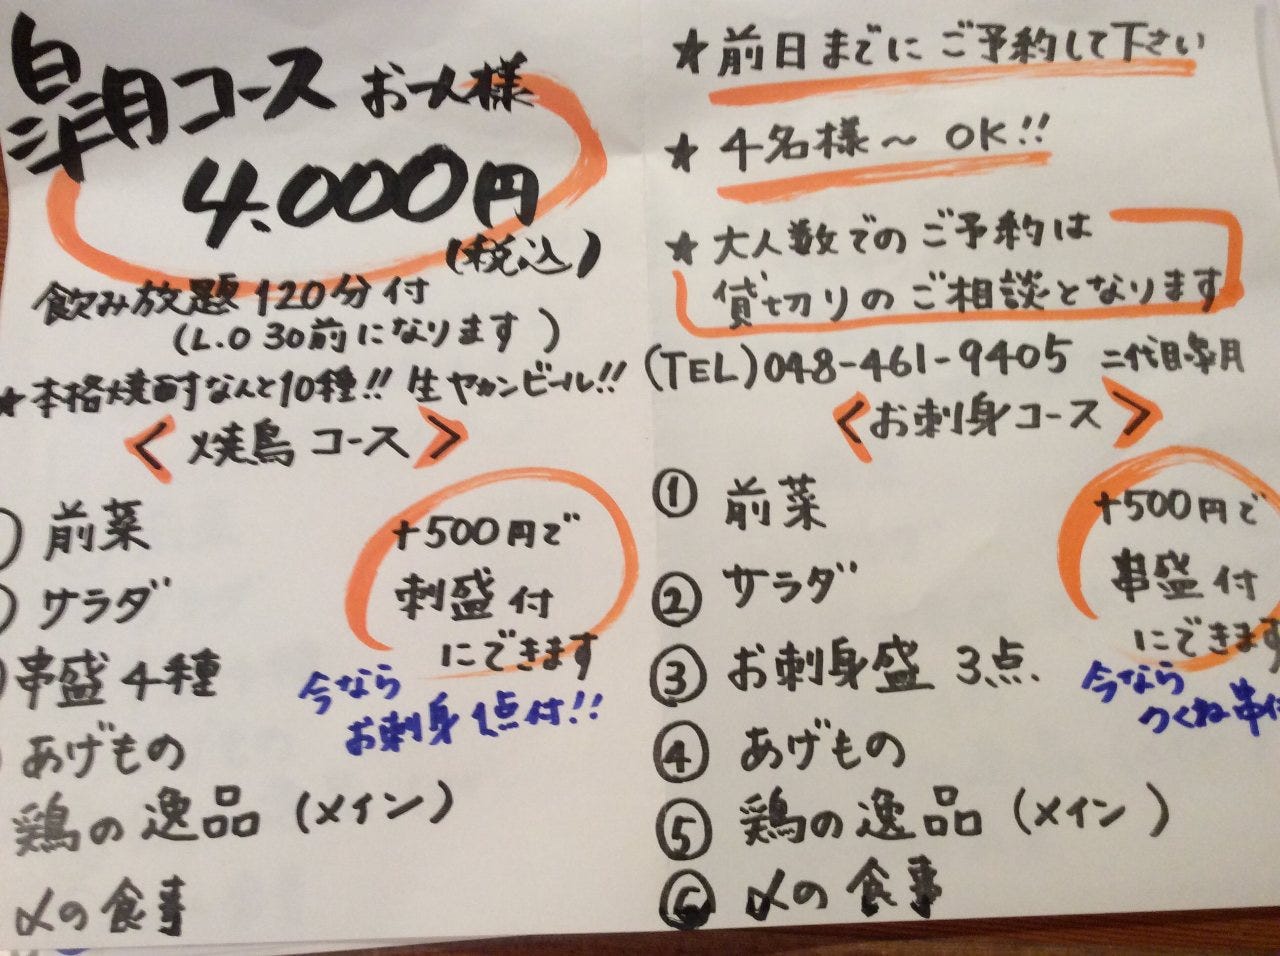 皐月コース お一人様
4.000円
(税込)
飲み放題 120分付
(L.O 30前になります)
★本格焼酎なんと10種!! 生ヤカンビール!!
＜焼鳥コース＞
前菜
サラダ
串盛 4種
あげもの
鶏の逸品 (メイン)
〆の食事
+500円で
刺盛付
にできます
今なら
お刺身1点付!!
★前日までにご予約して下さい
★4名様〜 OK!!
★大人数でのご予約は
貸切りのご相談となります
(TEL)048-461-9405 二代目皐月
＜お刺身コース＞
① 前菜
② サラダ
③ お刺身盛 3点
④ あげもの
⑤ 鶏の逸品 (メイン)
⑥ 〆の食事
+500円で
串盛付
にできます
今なら
つくね串付